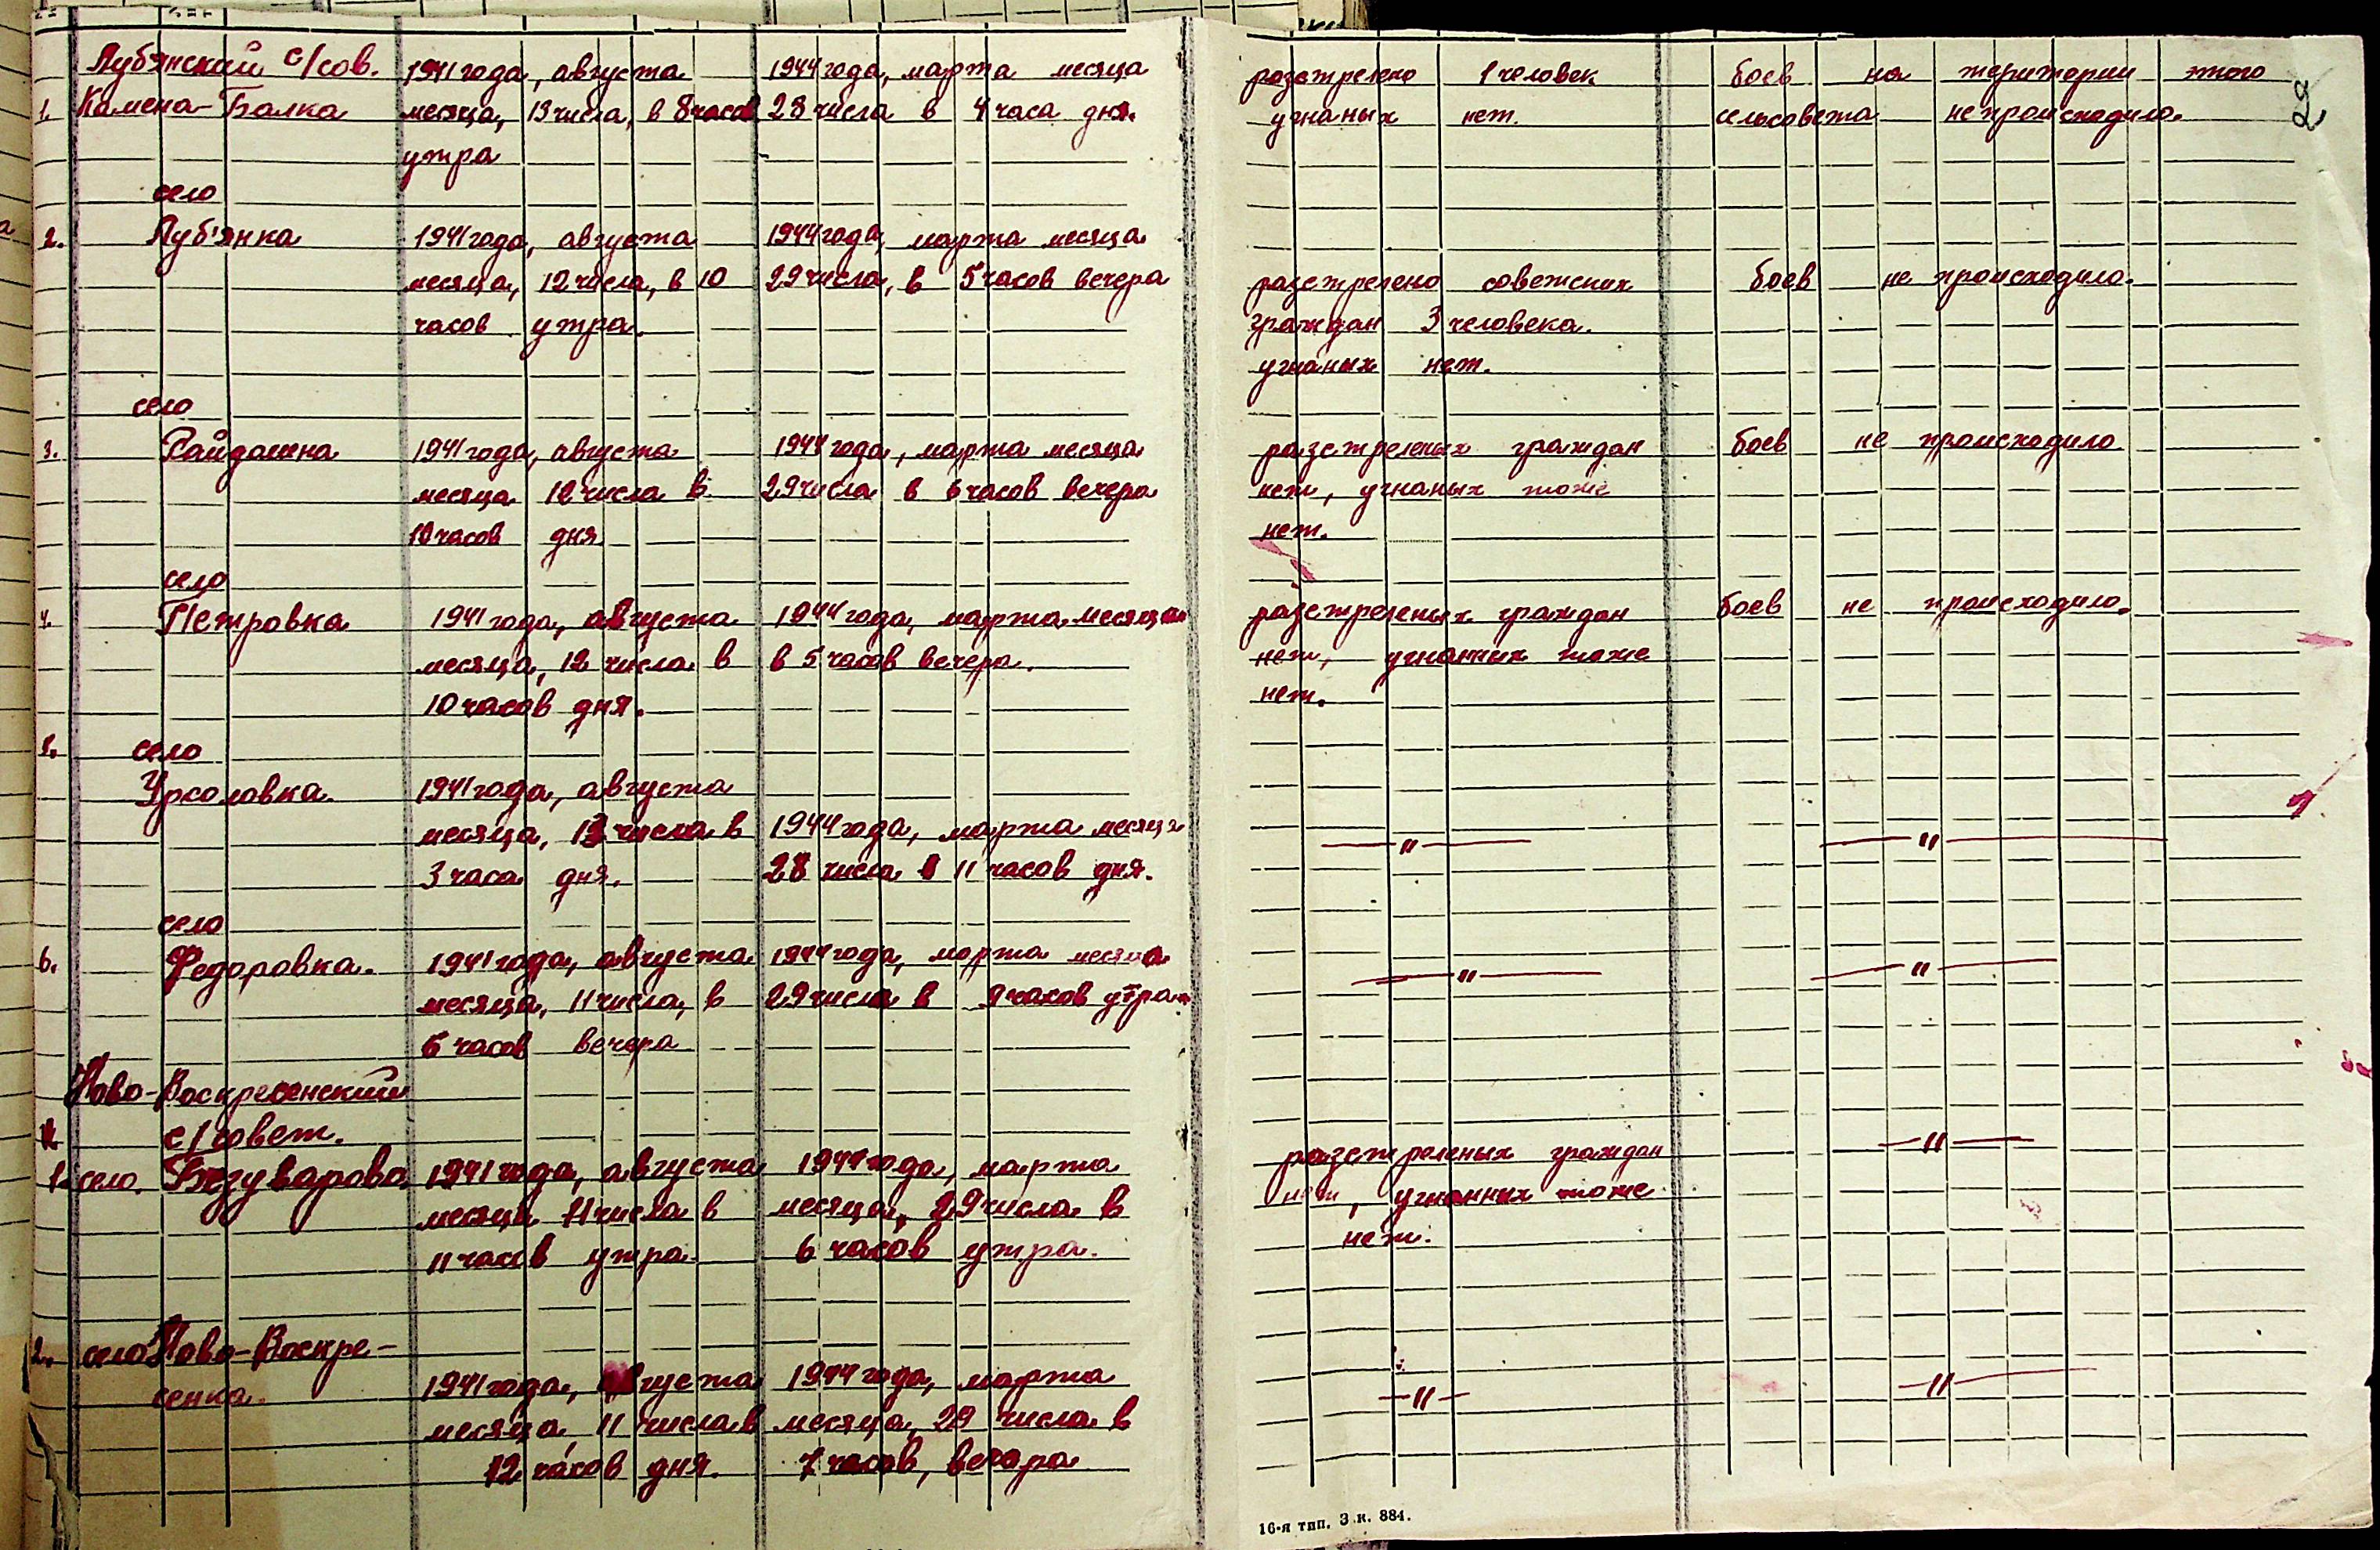 Луб'янский с/сов. 1941 года, августа 1944 года, марта месяца разстрелено 1 человек боев на територии этого
1. Камена-Балка месяца, 13 числа, в 8 часов 28 числа в 4 часа дня. угнаных нет. сельсовета непроисходило.
утра
село
2. Луб'янка 1941 года, августа 1944 года, марта месяца
месяца, 12 числа, в 10 29 числа, в 5 часов вечера разстрелено советских боев не происходило.
часов утра. граждан 3 человека.
угнаных нет.
село
3. Райдолина 1941 года, августа 1944 года, марта месяца разстреленых граждан боев не происходило
месяца 12 числа в 29 числа в 6 часов вечера нет, угнаных тоже
10 часов дня нет.
село
4. Петровка 1941 года, августа 1944 года, марта месяца разстреленых граждан боев не происходило.
месяца, 12 числа в в 5 часов вечера. нет, угнанных тоже
10 часов дня. нет.
село
Урсоловка. 1941 года, августа
месяца, 13 числа в 1944 года, марта месяца —"— —"—
3 часа дня. 28 числа в 11 часов дня.
село
6. Федоровка. 1941 года, августа 1944 года, марта месяца —"— —"—
месяца, 11 числа, в 29 числа в 9 часов утра.
5 часов вечера
Ново-Воскресенский
с/совет. —"—
1. село Безуварово. 1941 года, августа 1944 года, марта разстреленых граждан
месяца 11 числа в месяца, 29 числа в нет, угнанных тоже
11 часов утра. 6 часов утра. нет.
2. село Ново-Воскре-
сенка. 1941 года, августа 1944 года, марта —"— —"—
месяца, 11 числа в месяца, 29 числа в
12 часов дня. 7 часов, вечера
29
16-я тип. З.к. 884.